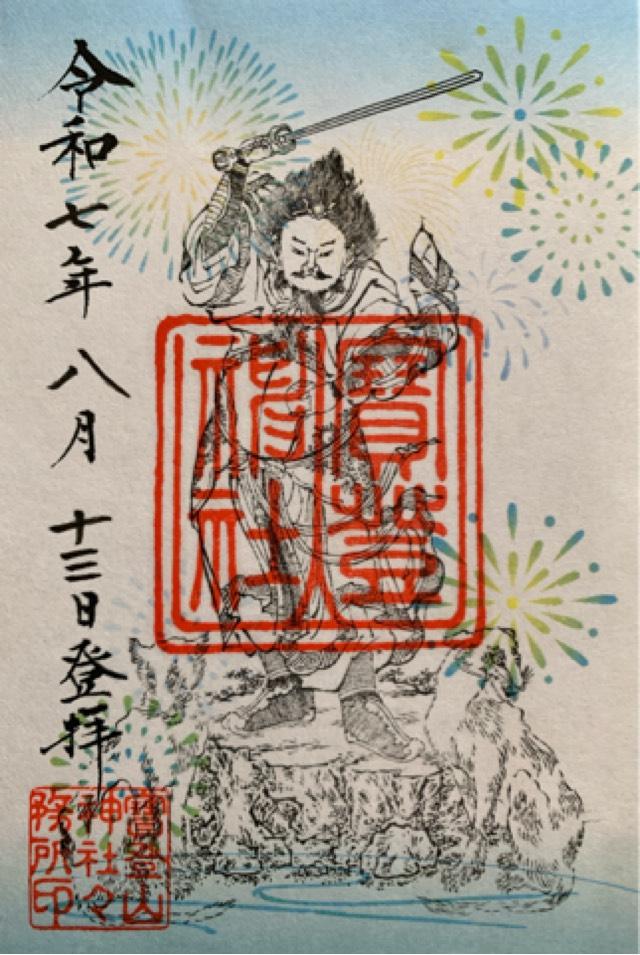 寶登
神社
令和七年八月十三日登拝
寶登山
神社々
務所印